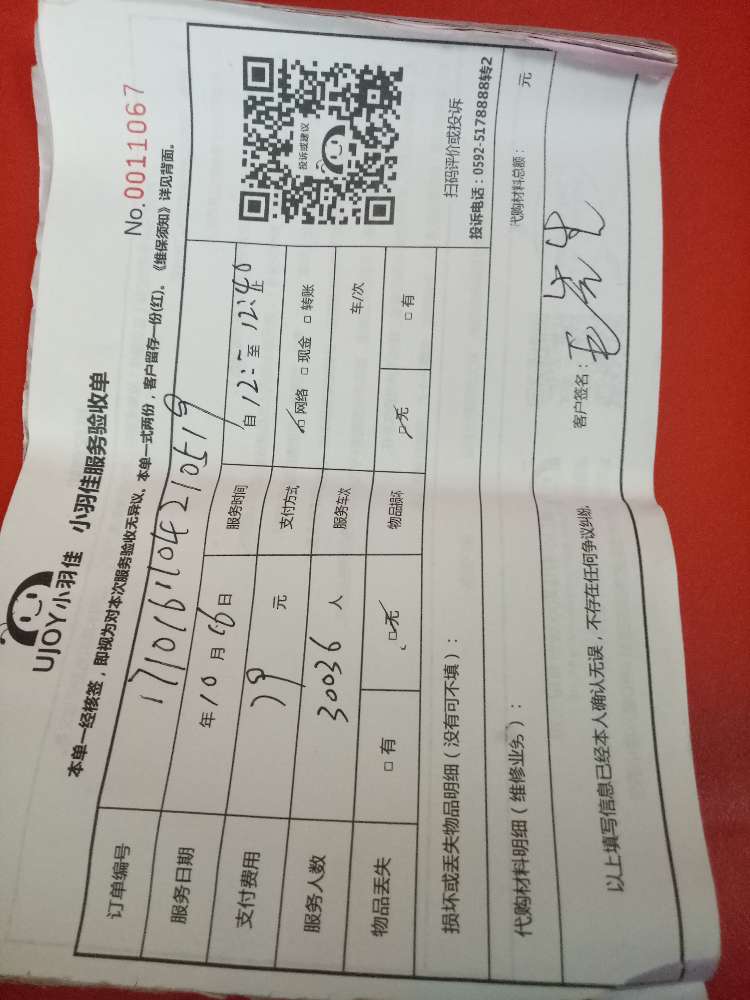 UJOY小羽佳 小羽佳服务验收单
No.0011067
本单一经核签，即视为对本次服务验收无异议，本单一式两份，客户留存一份(红)。《维保须知》详见背面。
订单编号 1710161104210519
服务日期 年 10 月 16 日 服务时间 自 12:- 至 12:40 止
支付费用 79 元 支付方式 ☑ 网络 □ 现金 □ 转账
服务人数 30036 人 服务车次 车/次
物品丢失 □ 有 ☑ 无 物品损坏 ☑ 无 □ 有
投诉或建议
扫码评价或投诉
投诉电话：0592-5178888转2
损坏或丢失物品明细（没有可不填）：
代购材料明细（维修业务）： 代购材料总额： 元
以上填写信息已经本人确认无误，不存在任何争议纠纷 客户签名：王先生